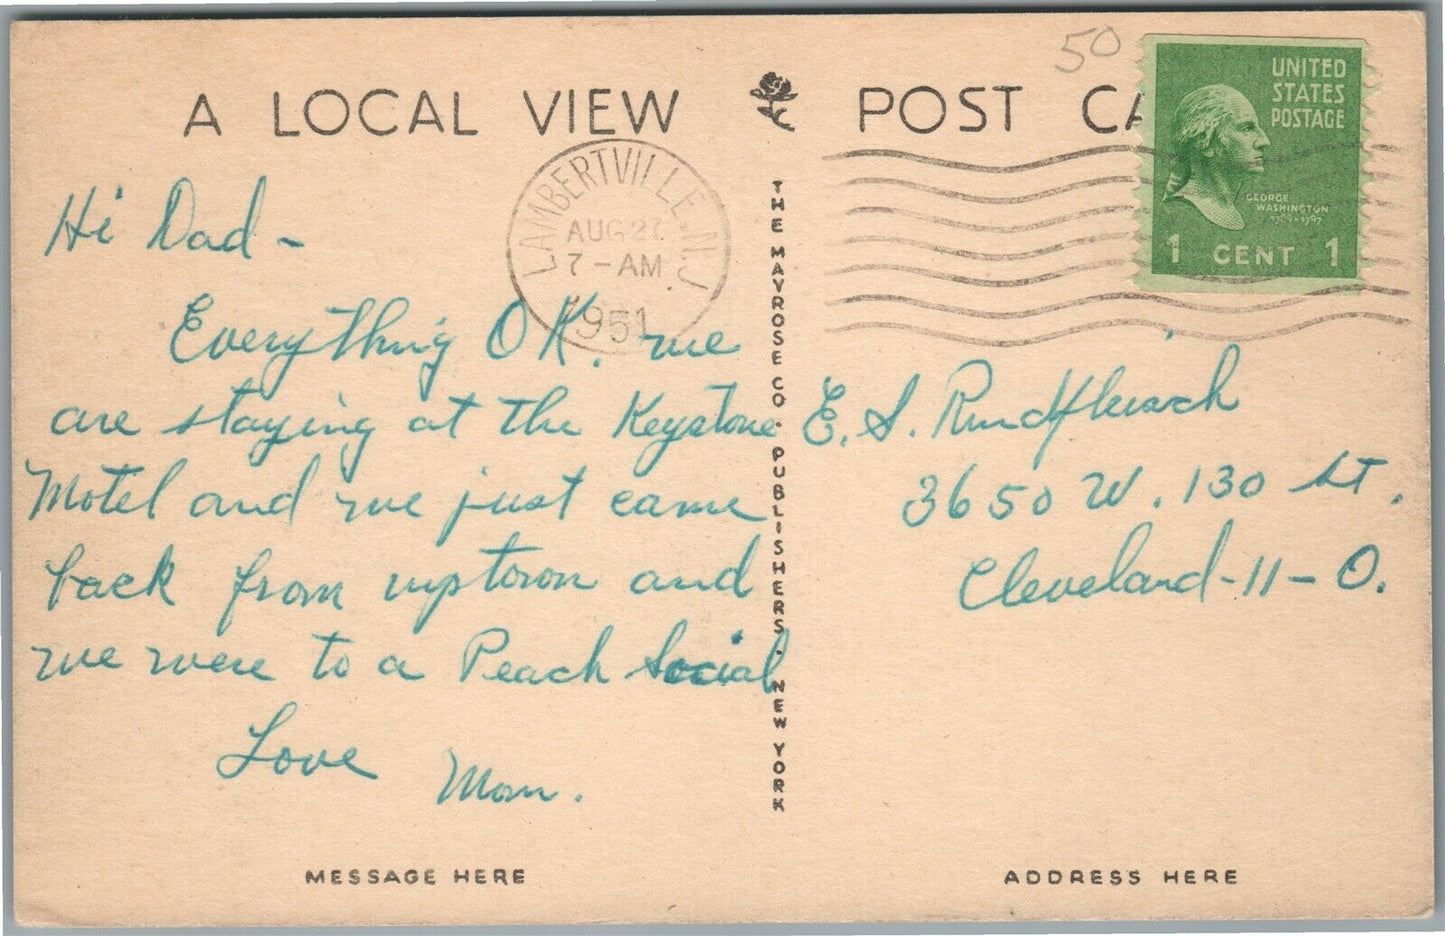 50
A LOCAL VIEW
POST CA
UNITED
STATES
POSTAGE
GEORGE
WASHINGTON
1789-1797
1 CENT 1
LAMBERTVILLE, N.J.
AUG 2
7-AM
1951
Hi Dad -
Everything OK. we
are staying at the Keystone
Motel and we just came
back from uptown and
we were to a Peach Social
Love
Mom.
THE MAYROSE CO. PUBLISHERS. NEW YORK
E. S. Rindfleisch
3650 W. 130 St.
Cleveland-11-O.
MESSAGE HERE
ADDRESS HERE